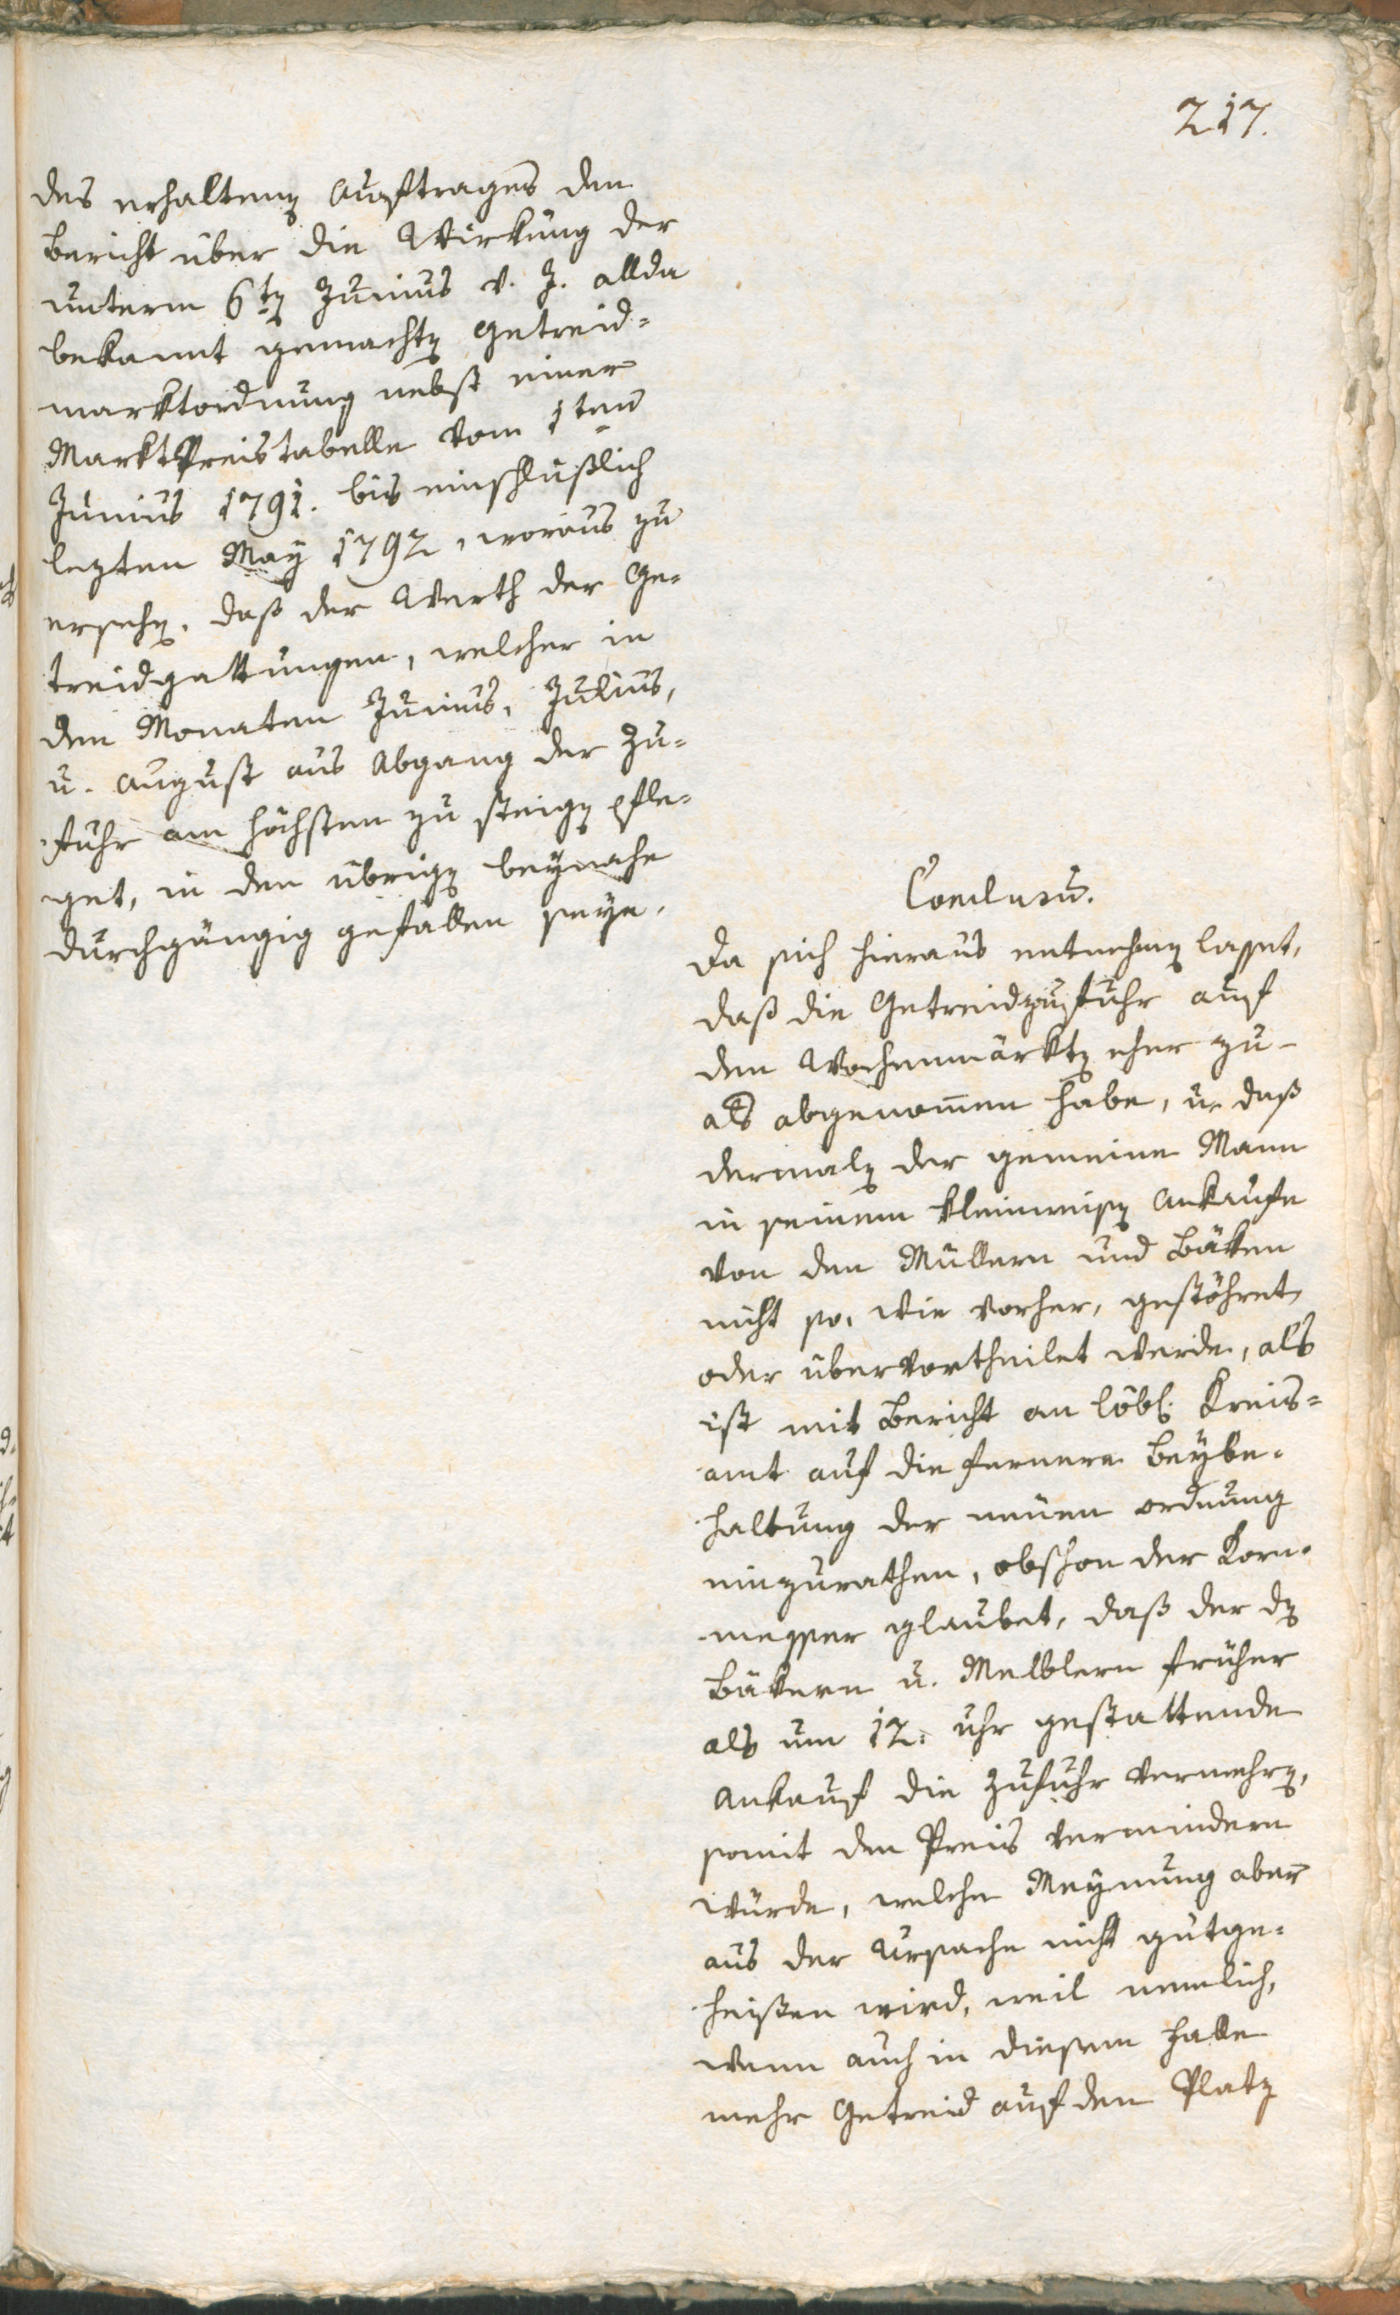 217.
des erhaltenen Auftrages den
Bericht über die Wirkung der
unterm 6ten Junius v. J. allda
bekannt gemachten Getreid-
marktordnung nebst einer
Marktpreistabelle vom 1ten
Junius 1791. bis einschlüßlich
lezten May 1792, woraus zu
ersehen, daß der Werth der Ge-
treidgattungen, welcher in
den Monaten Junius, Julius,
u. August aus Abgang der Zu-
fuhr am höchsten zu steigen pfle-
get, in den übrigen beynahe
durchgängig gefallen seye.
Conclusum.
Da sich hieraus entnehmen lasset,
daß die Getreidzufuhr auf
den Wochenmärkten eher zu-
als abgenommen habe, u. daß
dermalen der gemeine Mann
in seinem kleinweisen Ankaufe
von den Müllern und Bäken
nicht so, wie vorher, gestöhret,
oder übervortheilet werde, als
ist mit Bericht an löbl. Kreis-
amt auf die fernere Beybe-
haltung der neuen Ordnung
einzurathen, obschon der Korn-
messer glaubet, daß der den
Bäkern u. Melblern früher
als um 12. Uhr gestattende
Ankauf die Zufuhr vermehren,
somit den Preis vermindern
würde, welche Meynung aber
aus der Ursache nicht gutge-
heißen wird, weil nemlich,
wenn auch in diesem Falle
mehr Getreid auf den Platz